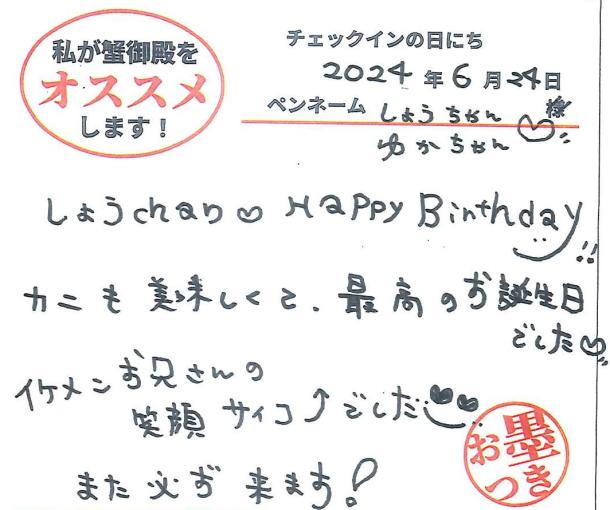 私が蟹御殿を
オススメ
します！
チェックインの日にち
2024年6月24日
ペンネーム しょうちゃん 様
ゆかちゃん
しょうchan♡ Happy Birthday!!
カニも美味しくて、最高のお誕生日
でした♡
イケメンお兄さんの
笑顔サイコ↑でした
また必ず来ます!
お墨
つき